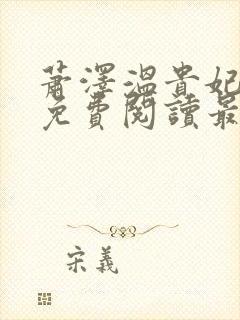 蕭澤溫貴妃
免費閱讀最
宋義